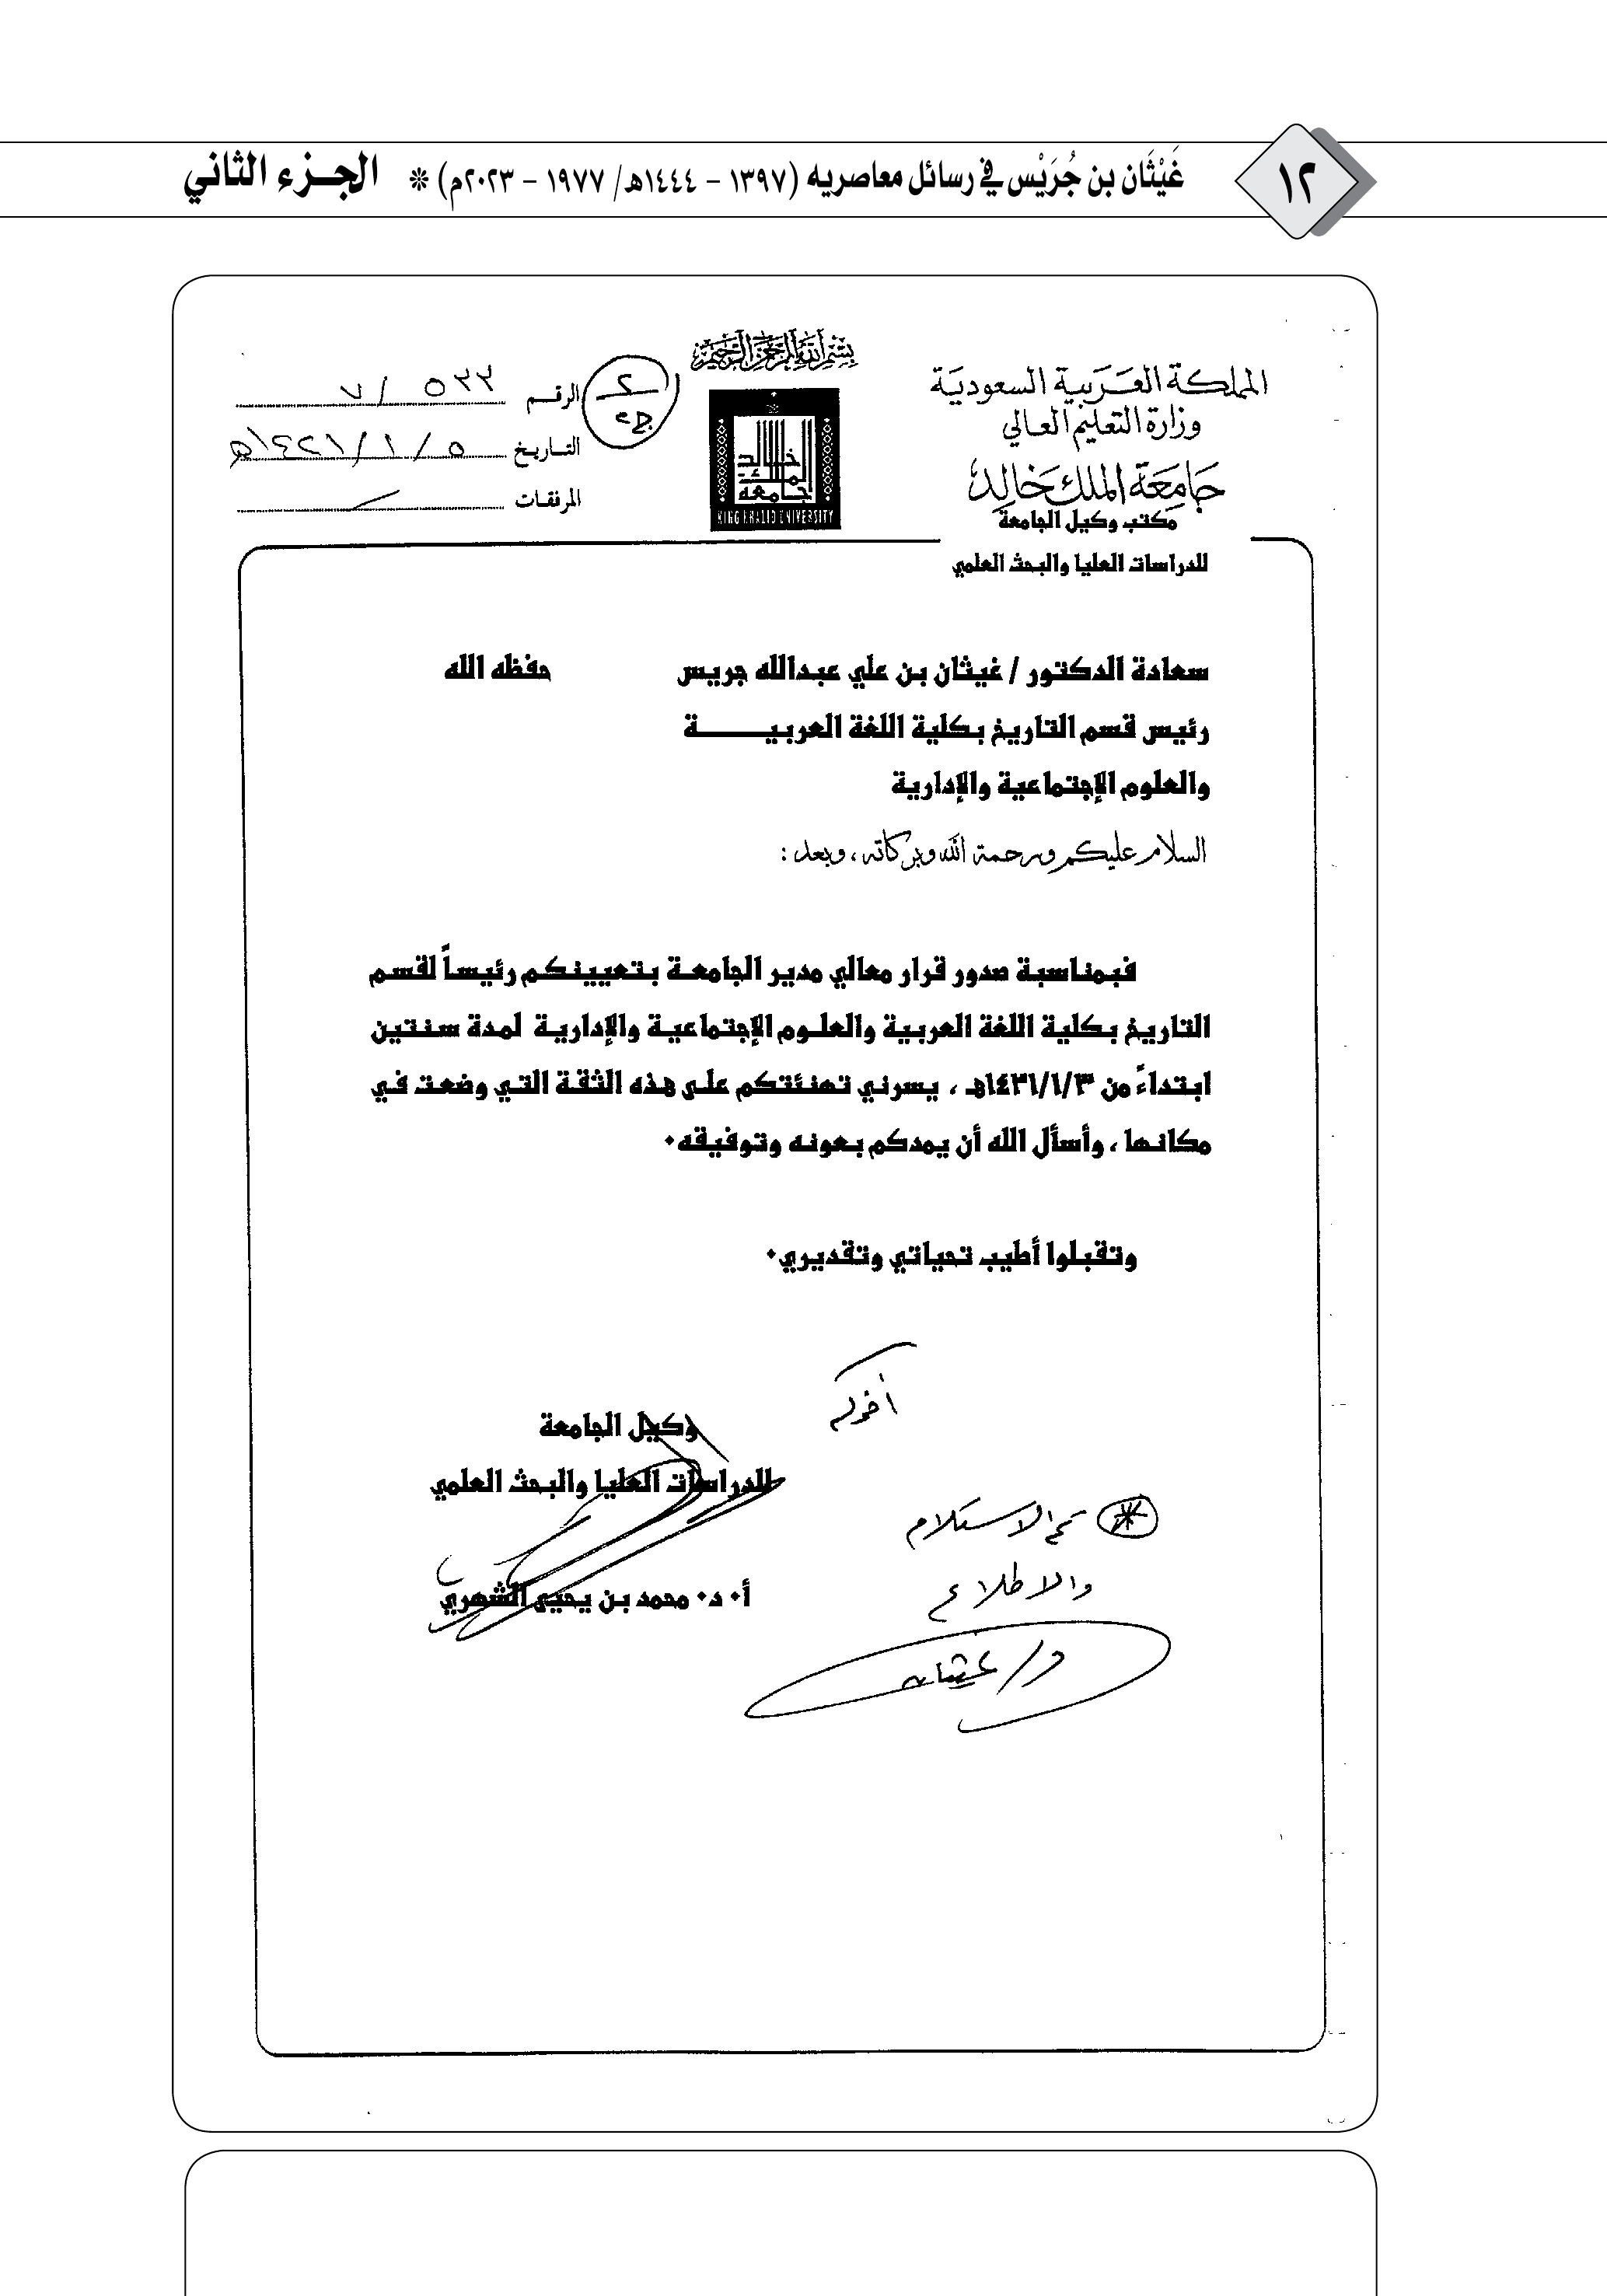 ١٢
غَيْثَان بن جُرَيْس في رسائل معاصريه (١٣٩٧ - ١٤٤٤هـ/ ١٩٧٧ - ٢٠٢٣م) * الجزء الثاني
بسم الله الرحمن الرحيم
المملكة العربية السعودية
وزارة التعليم العالي
جامعة الملك خالد
مكتب وكيل الجامعة
للدراسات العليا والبحث العلمي
جامعة الملك خالد
KING KHALID UNIVERSITY
الرقم ٥٣٣ / ٧
التاريخ ٥ / ١ / ١٤٢١هـ
المرفقات
سعادة الدكتور / غيثان بن علي عبدالله جريس حفظه الله
رئيس قسم التاريخ بكلية اللغة العربيـــــــة
والعلوم الإجتماعية والإدارية
السلام عليكم ورحمة الله وبركاته ، وبعد :
فبمناسبة صدور قرار معالي مدير الجامعة بتعيينكم رئيساً لقسم
التاريخ بكلية اللغة العربية والعلوم الإجتماعية والإدارية لمدة سنتين
ابتداءً من ١٤٢١/١/٣هـ ، يسرني تهنئتكم على هذه الثقة التي وضعت في
مكانها ، وأسأل الله أن يمدكم بعونه وتوفيقه٠
وتقبلوا أطيب تحياتي وتقديري٠
أخوكم
وكيل الجامعة
للدراسات العليا والبحث العلمي
أ٠ د٠ محمد بن يحيى الشهري
* تم الاستلام
والاطلاع
د/ غيثان